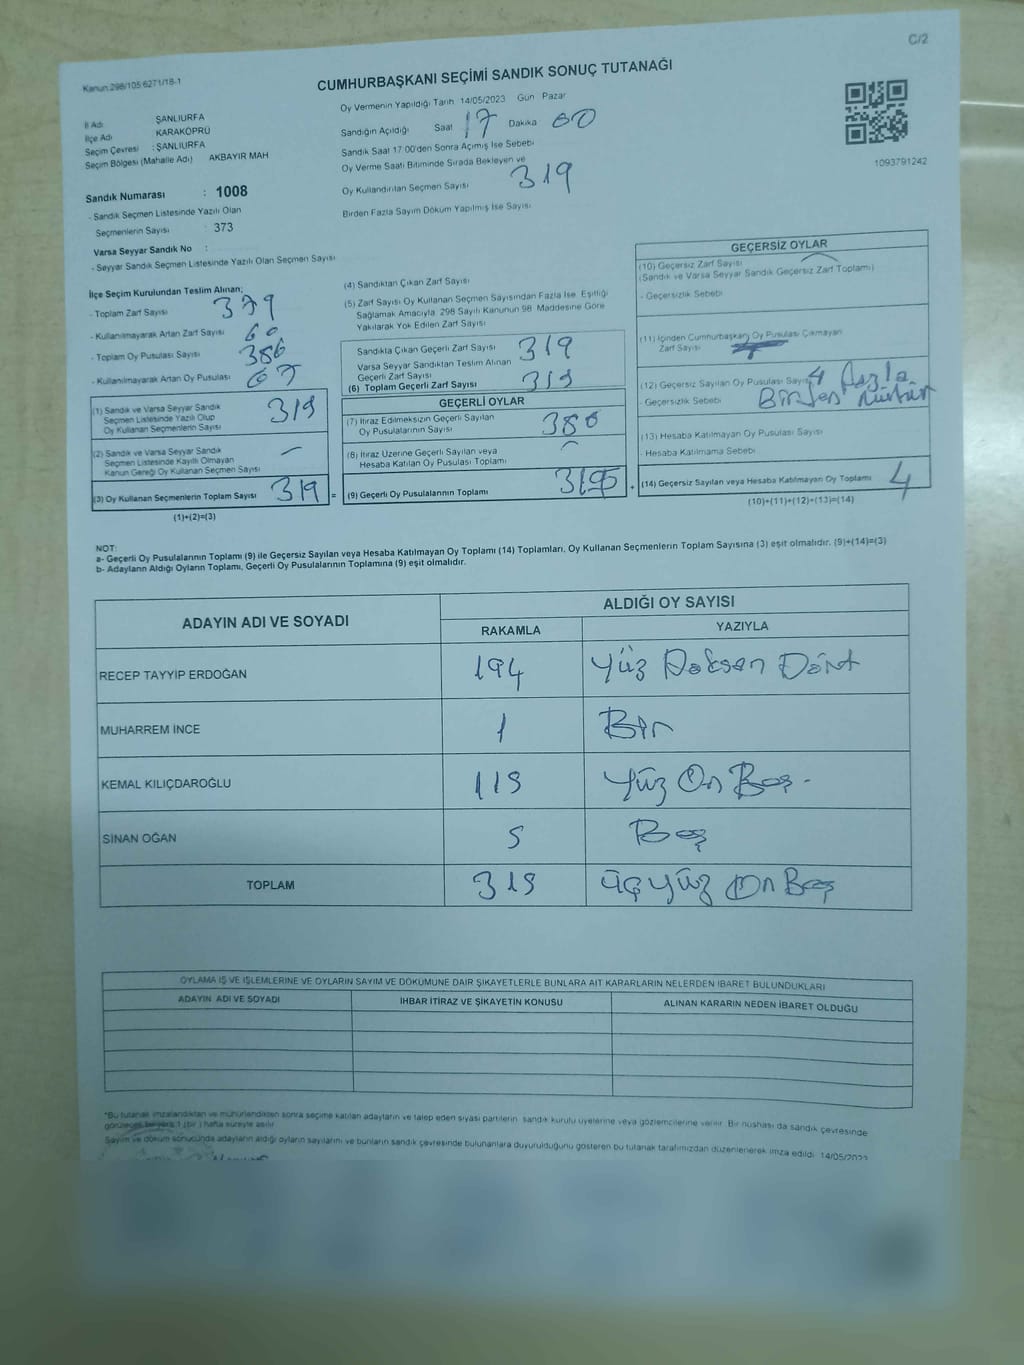 C/2
Kanun:298/105 6271/18-1
CUMHURBAŞKANI SEÇİMİ SANDIK SONUÇ TUTANAĞI
İl Adı ŞANLIURFA
İlçe Adı KARAKÖPRÜ
Seçim Çevresi : ŞANLIURFA
Seçim Bölgesi (Mahalle Adı) AKBAYIR MAH
Sandık Numarası : 1008
- Sandık Seçmen Listesinde Yazılı Olan
Seçmenlerin Sayısı : 373
Varsa Seyyar Sandık No :
- Seyyar Sandık Seçmen Listesinde Yazılı Olan Seçmen Sayısı
Oy Vermenin Yapıldığı Tarih 14/05/2023 Gün Pazar
Sandığın Açıldığı Saat 17 Dakika 00
Sandık Saat 17:00'den Sonra Açımış İse Sebebi
Oy Verme Saati Bitiminde Sırada Bekleyen ve
Oy Kullandırılan Seçmen Sayısı 319
Birden Fazla Sayım Döküm Yapılmış İse Sayısı
1093791242
İlçe Seçim Kurulundan Teslim Alınan;
- Toplam Zarf Sayısı 379
- Kullanılmayarak Artan Zarf Sayısı 60
- Toplam Oy Pusulası Sayısı 386
- Kullanılmayarak Artan Oy Pusulası 67
(1) Sandık ve Varsa Seyyar Sandık
Seçmen Listesinde Yazılı Olup
Oy Kullanan Seçmenlerin Sayısı 319
(2) Sandık ve Varsa Seyyar Sandık
Seçmen Listesinde Kayıtlı Olmayan
Kanun Gereği Oy Kullanan Seçmen Sayısı –
(3) Oy Kullanan Seçmenlerin Toplam Sayısı 319 =
(1)+(2)=(3)
(4) Sandıktan Çıkan Zarf Sayısı
(5) Zarf Sayısı Oy Kullanan Seçmen Sayısından Fazla İse, Eşitliği
Sağlamak Amacıyla, 298 Sayılı Kanunun 98. Maddesine Göre
Yakılarak Yok Edilen Zarf Sayısı
Sandıkta Çıkan Geçerli Zarf Sayısı 319
Varsa Seyyar Sandıktan Teslim Alınan
Geçerli Zarf Sayısı
(6) Toplam Geçerli Zarf Sayısı 319
GEÇERLİ OYLAR
(7) İtiraz Edilmeksizin Geçerli Sayılan
Oy Pusulalarının Sayısı
(8) İtiraz Üzerine Geçerli Sayılan veya
Hesaba Katılan Oy Pusulası Toplamı –
(9) Geçerli Oy Pusulalarının Toplamı +
GEÇERSİZ OYLAR
(10) Geçersiz Zarf Sayısı –
(Sandık ve Varsa Seyyar Sandık Geçersiz Zarf Toplamı)
- Geçersizlik Sebebi
(11) İçinden Cumhurbaşkanı Oy Pusulası Çıkmayan
Zarf Sayısı
(12) Geçersiz Sayılan Oy Pusulası Sayısı 4
- Geçersizlik Sebebi Birden Fazla Mühür
(13) Hesaba Katılmayan Oy Pusulası Sayısı
- Hesaba Katılmama Sebebi
(14) Geçersiz Sayılan veya Hesaba Katılmayan Oy Toplamı 4
(10)+(11)+(12)+(13)=(14)
NOT:
a- Geçerli Oy Pusulalarının Toplamı (9) ile Geçersiz Sayılan veya Hesaba Katılmayan Oy Toplamı (14) Toplamları, Oy Kullanan Seçmenlerin Toplam Sayısına (3) eşit olmalıdır. (9)+(14)=(3)
b- Adayların Aldığı Oyların Toplamı, Geçerli Oy Pusulalarının Toplamına (9) eşit olmalıdır.
ADAYIN ADI VE SOYADI ALDIĞI OY SAYISI
RAKAMLA YAZIYLA
RECEP TAYYİP ERDOĞAN 194 Yüz Doksan Dört
MUHARREM İNCE 1 Bir
KEMAL KILIÇDAROĞLU 115 Yüz On Beş
SİNAN OĞAN 5 Beş
TOPLAM 315 Üçyüz On Beş
OYLAMA İŞ VE İŞLEMLERİNE VE OYLARIN SAYIM VE DÖKÜMÜNE DAİR ŞİKAYETLERLE BUNLARA AİT KARARLARIN NELERDEN İBARET BULUNDUKLARI
ADAYIN ADI VE SOYADI İHBAR İTİRAZ VE ŞİKAYETİN KONUSU ALINAN KARARIN NEDEN İBARET OLDUĞU
*Bu tutanak imzalandıktan ve mühürlendikten sonra seçime katılan adayların ve talep eden siyasi partilerin, sandık kurulu üyelerine veya gözlemcilerine verilir. Bir nüshası da sandık çevresinde
görülecek bir yere 1 (bir) hafta süreyle asılır.
Sayım ve döküm sonucunda adayların aldığı oyların sayılarını ve bunların sandık çevresinde bulunanlara duyurulduğunu gösteren bu tutanak tarafımızdan düzenlenerek imza edildi. 14/05/2023